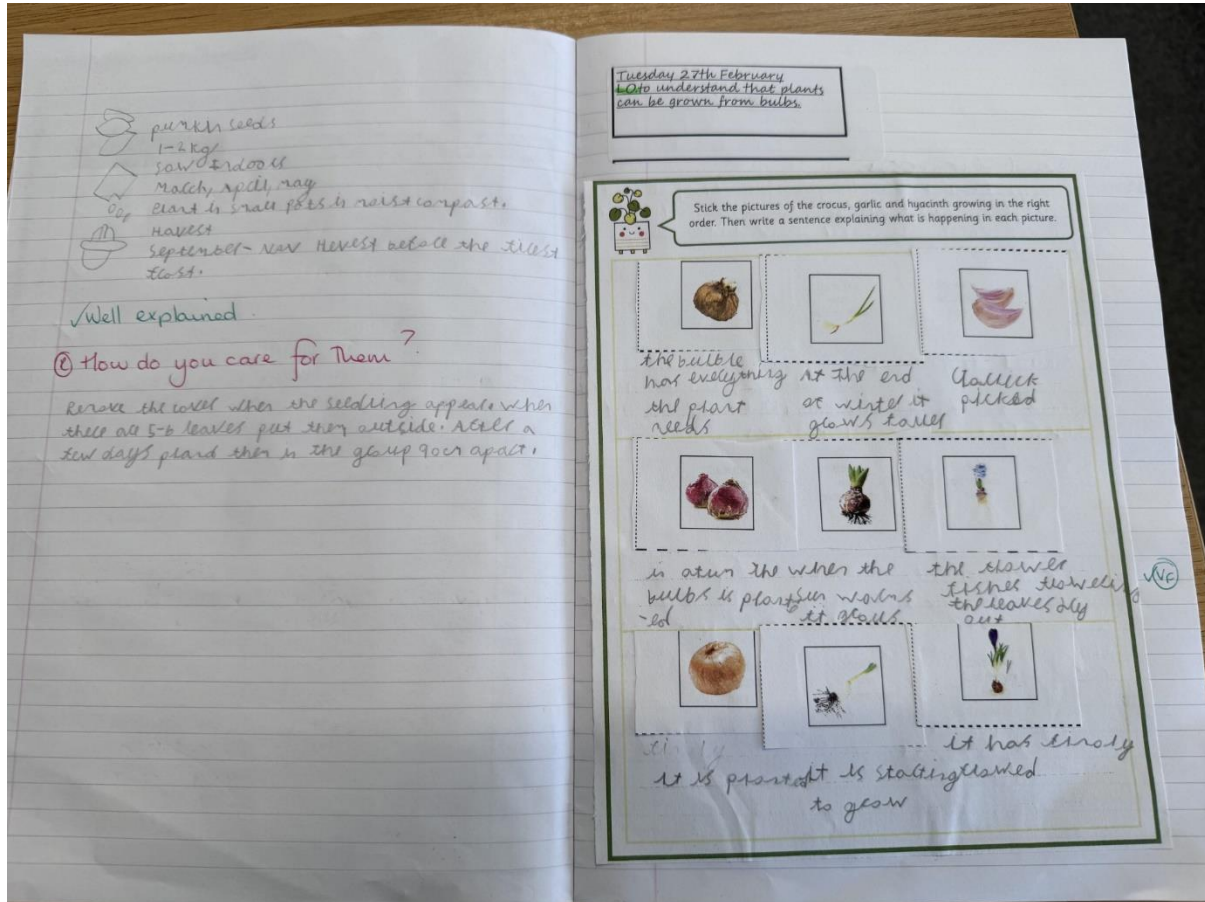 pumkin seeds
1-2kg
Sow indoors
March, April, may
Plant in small pots in moist compost.
Havest
September- Nov Hevest before the
frost.
✓Well explained.
How do you care for Them?
Remove the cover when the seedling appear. when
there are 5-6 leaves put they outside. After a
few days pland then in the group 90cm apart.
Tuesday 27th February
LO to understand that plants
can be grown from bulbs.
Stick the pictures of the crocus, garlic and hyacinth growing in the right
order. Then write a sentence explaining what is happening in each picture.
the bulble
has everything
the plant
needs
At the end
of winter it
grows taller
picked
the
bulbs is plant
-ed
when the
sun
it grows
the flower
the leaves
out
it is
it is starting
to grow
it has
VF